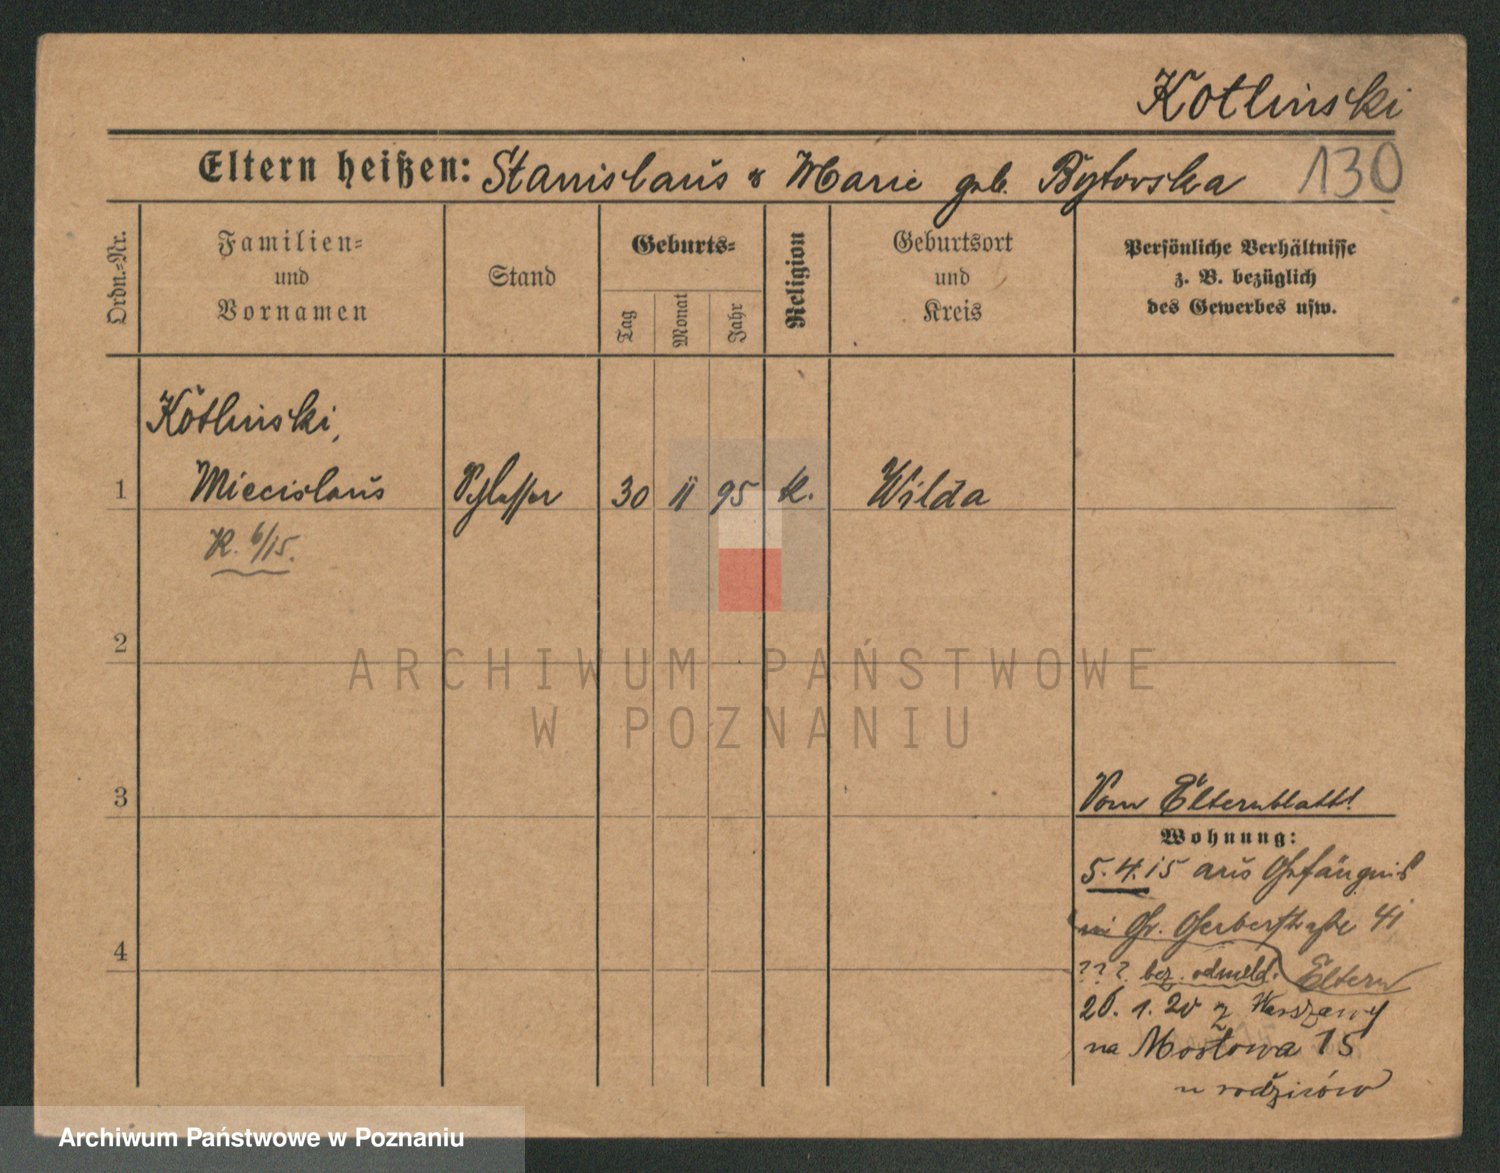 Kotlinski
Eltern heißen: Stanislaus & Marie geb. Bytovska 130
Ordn.=Nr.
Familien=
und
Vornamen
Stand
Geburts=
Tag
Monat
Jahr
Religion
Geburtsort
und
Kreis
Persönliche Verhältnisse
z. B. bezüglich
des Gewerbes usw.
Kotlinski,
1 Miecislaus Schlosser 30 11 95 k. Wilda
K. 6/15.
2
ARCHIWUM PAŃSTWOWE
W POZNANIU
3
Vom Elternblatt!
Wohnung:
5.4.15 aus Gefängnis
Gr. Gerberstraße 41
4
??? bez. odmeld. Eltern
26. 1. 20 z Warszawy
na Mostowa 15
u rodziców
Archiwum Państwowe w Poznaniu